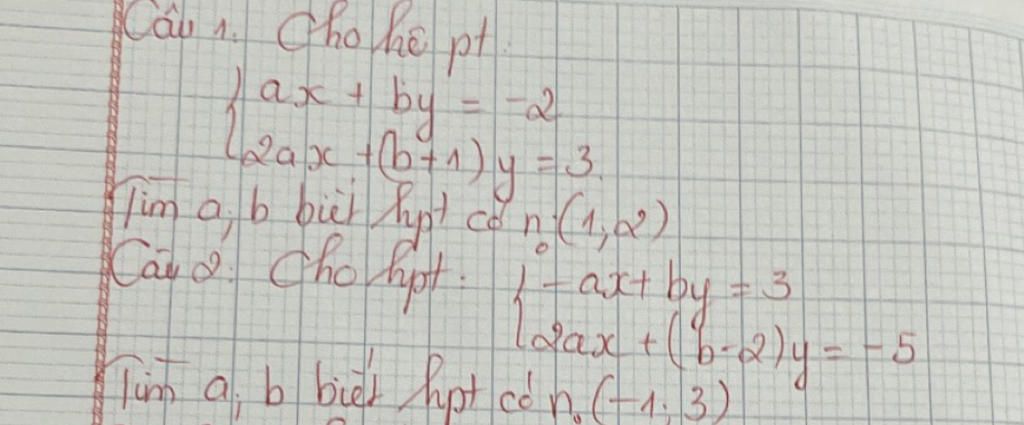 Câu 1. Cho hệ pt.
{ ax + by = -2
{ 2ax + (b+1)y = 3.
Tìm a, b biết hpt có no (1, 2)
Câu 2: Cho hpt: { -ax + by = 3
{ 2ax + (b-2)y = -5
Tìm a; b biết hpt có no (-1; 3)